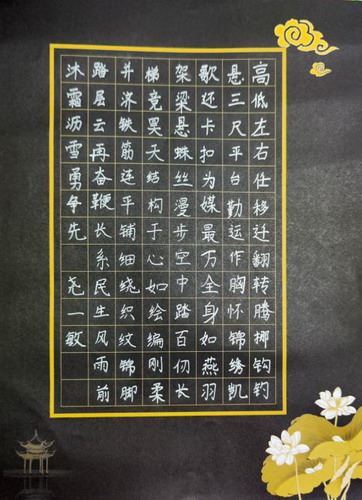 高低左右任移迁翻转腾挪钩钓
悬三尺平台勤运作胸怀锦绣凯
歌还卡扣为媒最万全身如燕羽
架梁悬蛛丝漫步空中踏百仞长
梯竟昊天结构于心如绘编刚柔
并济铁筋连平铺细绕织纹锦脚
踏层云再奋鞭长系民生风雨前
沐霜沥雪勇争先 尧一敏